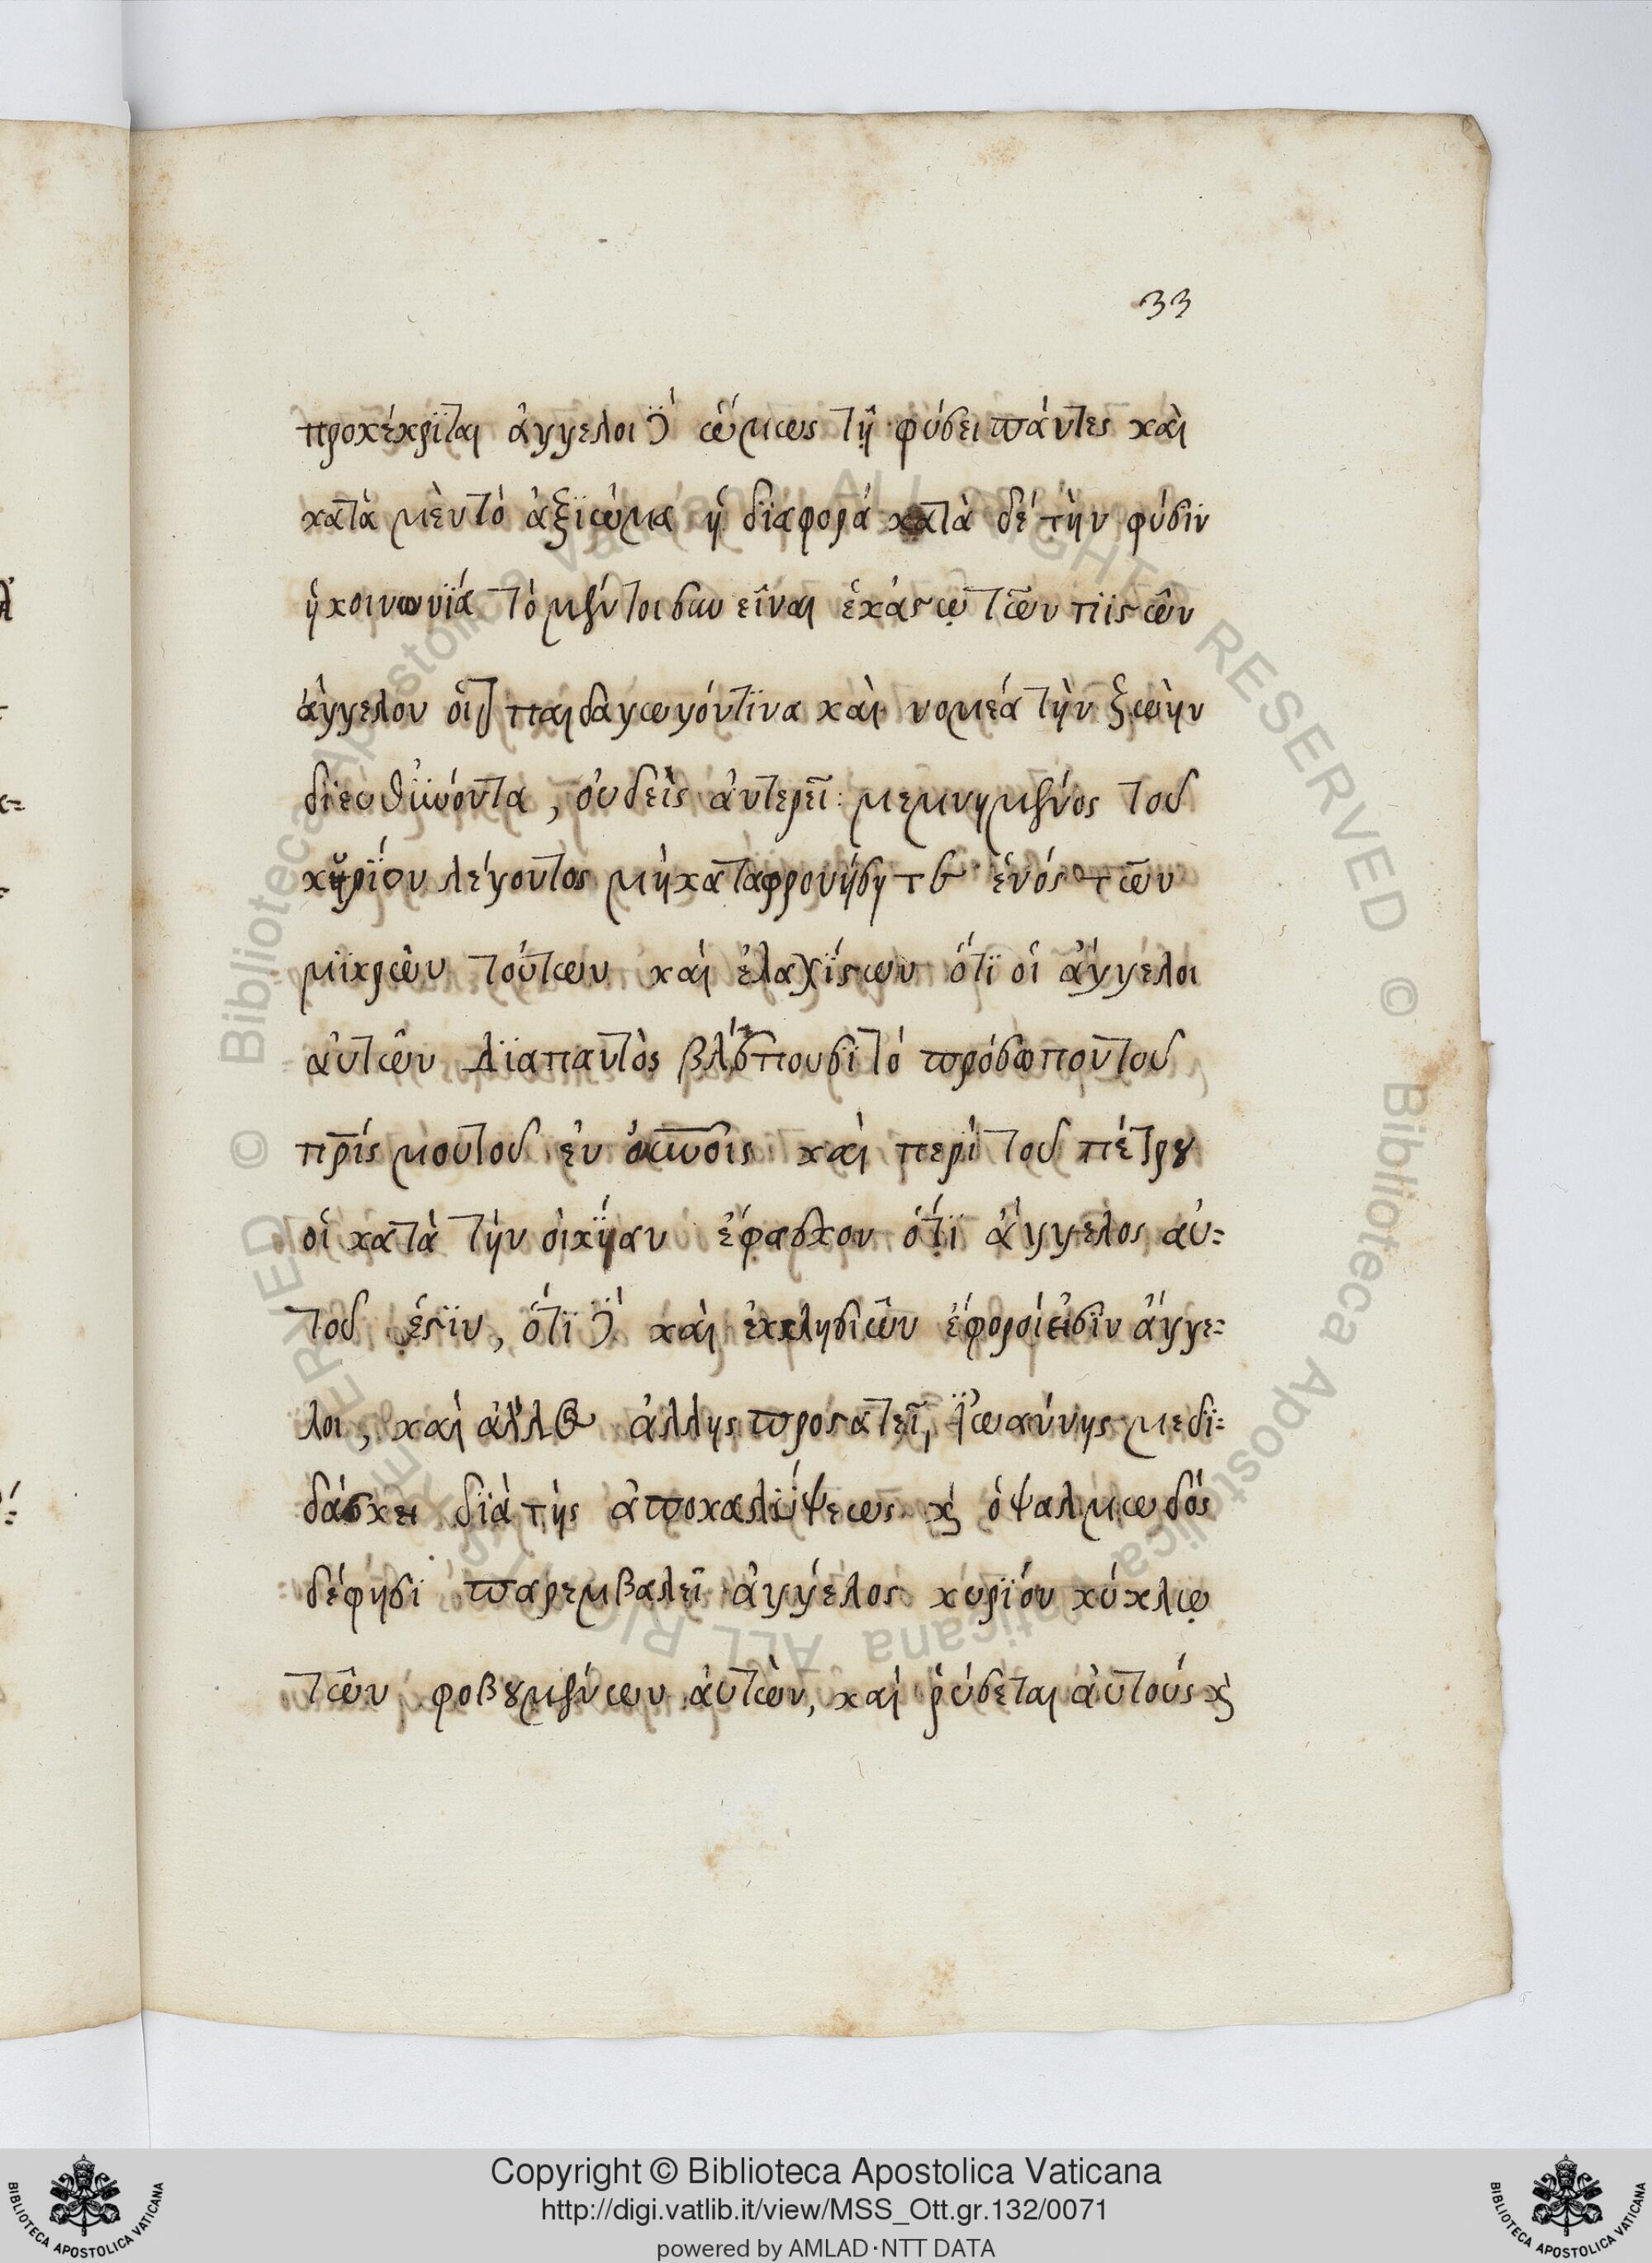 33
προκέκρϊται ἀγγελοι δέ ὥμως τῆ φύσει πάντες καὶ
κατὰ μὲν τὸ ἀξϊώμα ἡ δϊαφορά κατὰ δέ τὴν φύσϊν
ἡ κοινωνϊά τὸ μέντοι συν εἶναι ἑκάστῳ τῶν πϊϊστῶν
ἀγγελον παιδαγωγόν τϊνα καὶ νομέα τὴν ζωὴν
διευθϋνόντα, οὐδεὶς ἀντερεῖ: μεμνημένος τοῦ
κυρϊόυ λέγοντος μὴ καταφρονήσητε ἑνός τῶν
μϊκρῶν τούτων καὶ ἐλαχΐστων ὅτϊ οἱ ἀγγέλοι
αὐτῶν δϊαπαντὸς βλέπουσϊ τό πρόσωπον τοῦ
πρ̅ς μου τοῦ ἐν καὶ περὶ τοῦ πέτρου
οἱ κατὰ τὴν οἰκΐαν ἐφασκον ὅτϊ ἀγγελος αὐ=
τοῦ ἐστϊν, ὅτϊ δέ καὶ ἐκκλησϊῶν ἐφοροί εἰσϊν ἀγγε=
λοι, καὶ ἀλλος ἀλλης προστατεῖ, ϊωαννης με δϊ=
δάσκει δϊὰ τὴς ἀποκαλύψεως κὶ ὁ ψαλμωδός
δέ φησϊ παρεμβαλεῖ ἀγγέλος κυρϊόυ κύκλῳ
τῶν φοβουμένων ἀὐτὼν, καὶ ῥύσεται ἀὐτούς κὶ
Copyright © Biblioteca Apostolica Vaticana
http://digi.vatlib.it/view/MSS_Ott.gr.132/0071
powered by AMLAD·NTT DATA